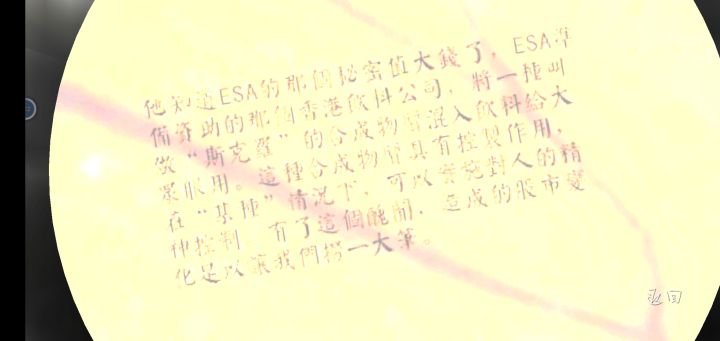 他知道ESA的那個秘密值大錢了，ESA準
備資助的那個香港飲料公司，將一種叫
做“斯克羅”的合成物質混入飲料給大
眾服用。這種合成物質具有控製作用，
在“某種”情況下，可以實施對人的精
神控制，有了這個醜聞，造成的股市變
化足以讓我們撈一大筆。
返回